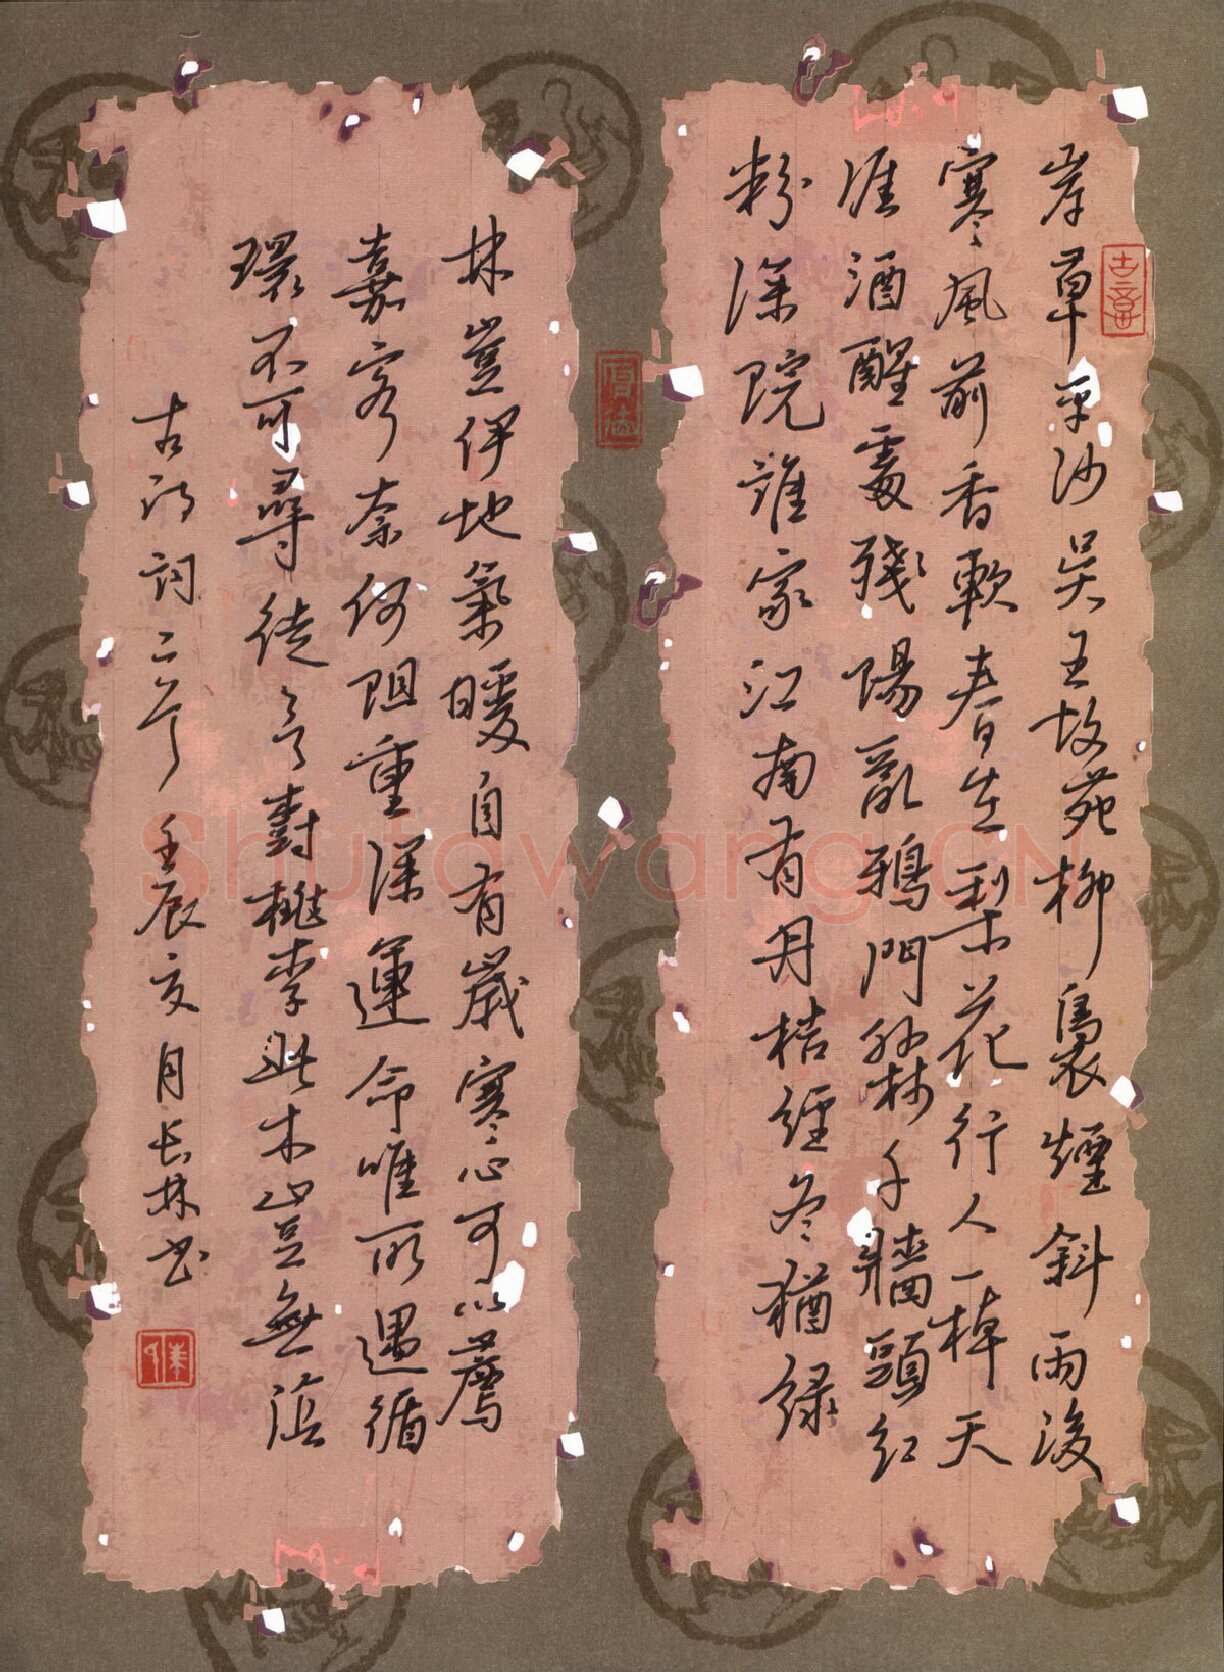 岸草平沙吴王故苑柳裊煙斜雨後
寒風前香軟春在梨花行人一棹天
涯酒醒處殘陽亂鴉門外秋千牆頭紅
粉深院誰家江南有丹桔經冬猶綠
林豈伊地氣暖自有歲寒心可以薦
嘉客奈何阻重深運命唯所遇循
環不可尋徒言樹桃李此木豈無陰
古诗词二首 壬辰亥月长林书
Shufawang.CN